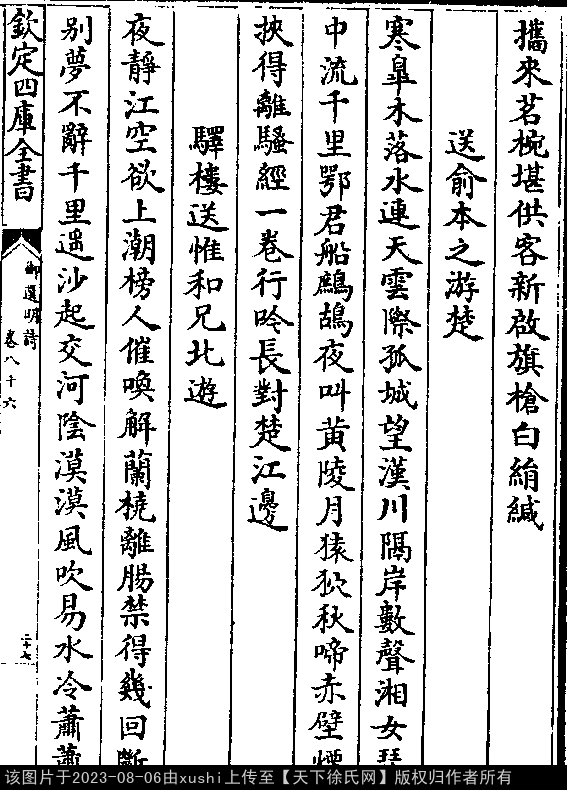 攜來茗椀堪供客新啟旗槍白絹緘
送俞本之游楚
寒臯木落水連天雲際孤城望漢川隔岸數聲湘女
中流千里鄂君船鷓鴣夜叫黃陵月猿狖秋啼赤壁
挾得離騷經一卷行吟長對楚江邊
驛樓送惟和兄北遊
夜靜江空欲上潮榜人催喚解蘭橈離腸禁得幾回斷
别夢不辭千里遥沙起交河陰漠漠風吹易水冷蕭蕭
欽定四庫全書
御選明詩
卷八十六
二十七
该图片于2023-08-06由xushi上传至【天下徐氏网】版权归作者所有